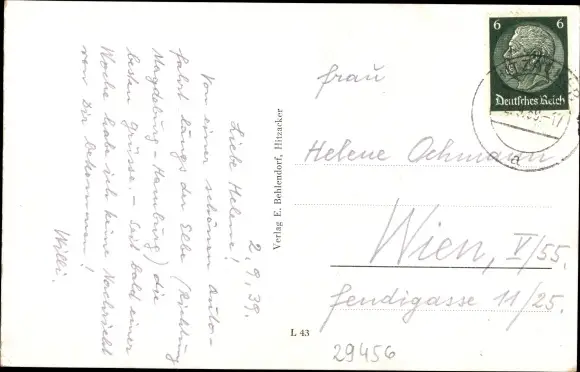 2.9.39.
Liebe Helene!
Von einer schönen Auto-
fahrt längs der Elbe (Richtung
Magdeburg - Hamburg) die
besten Grüsse. - Seit bald einer
Woche habe ich keine Nachricht
von Dir bekommen!
Willi.
Verlag E. Behlendorf, Hitzacker
L 43
6 6
Deutsches Reich
a
Frau
Helene Ochmann
Wien, V/55.
Fendigasse 11/25.
29456